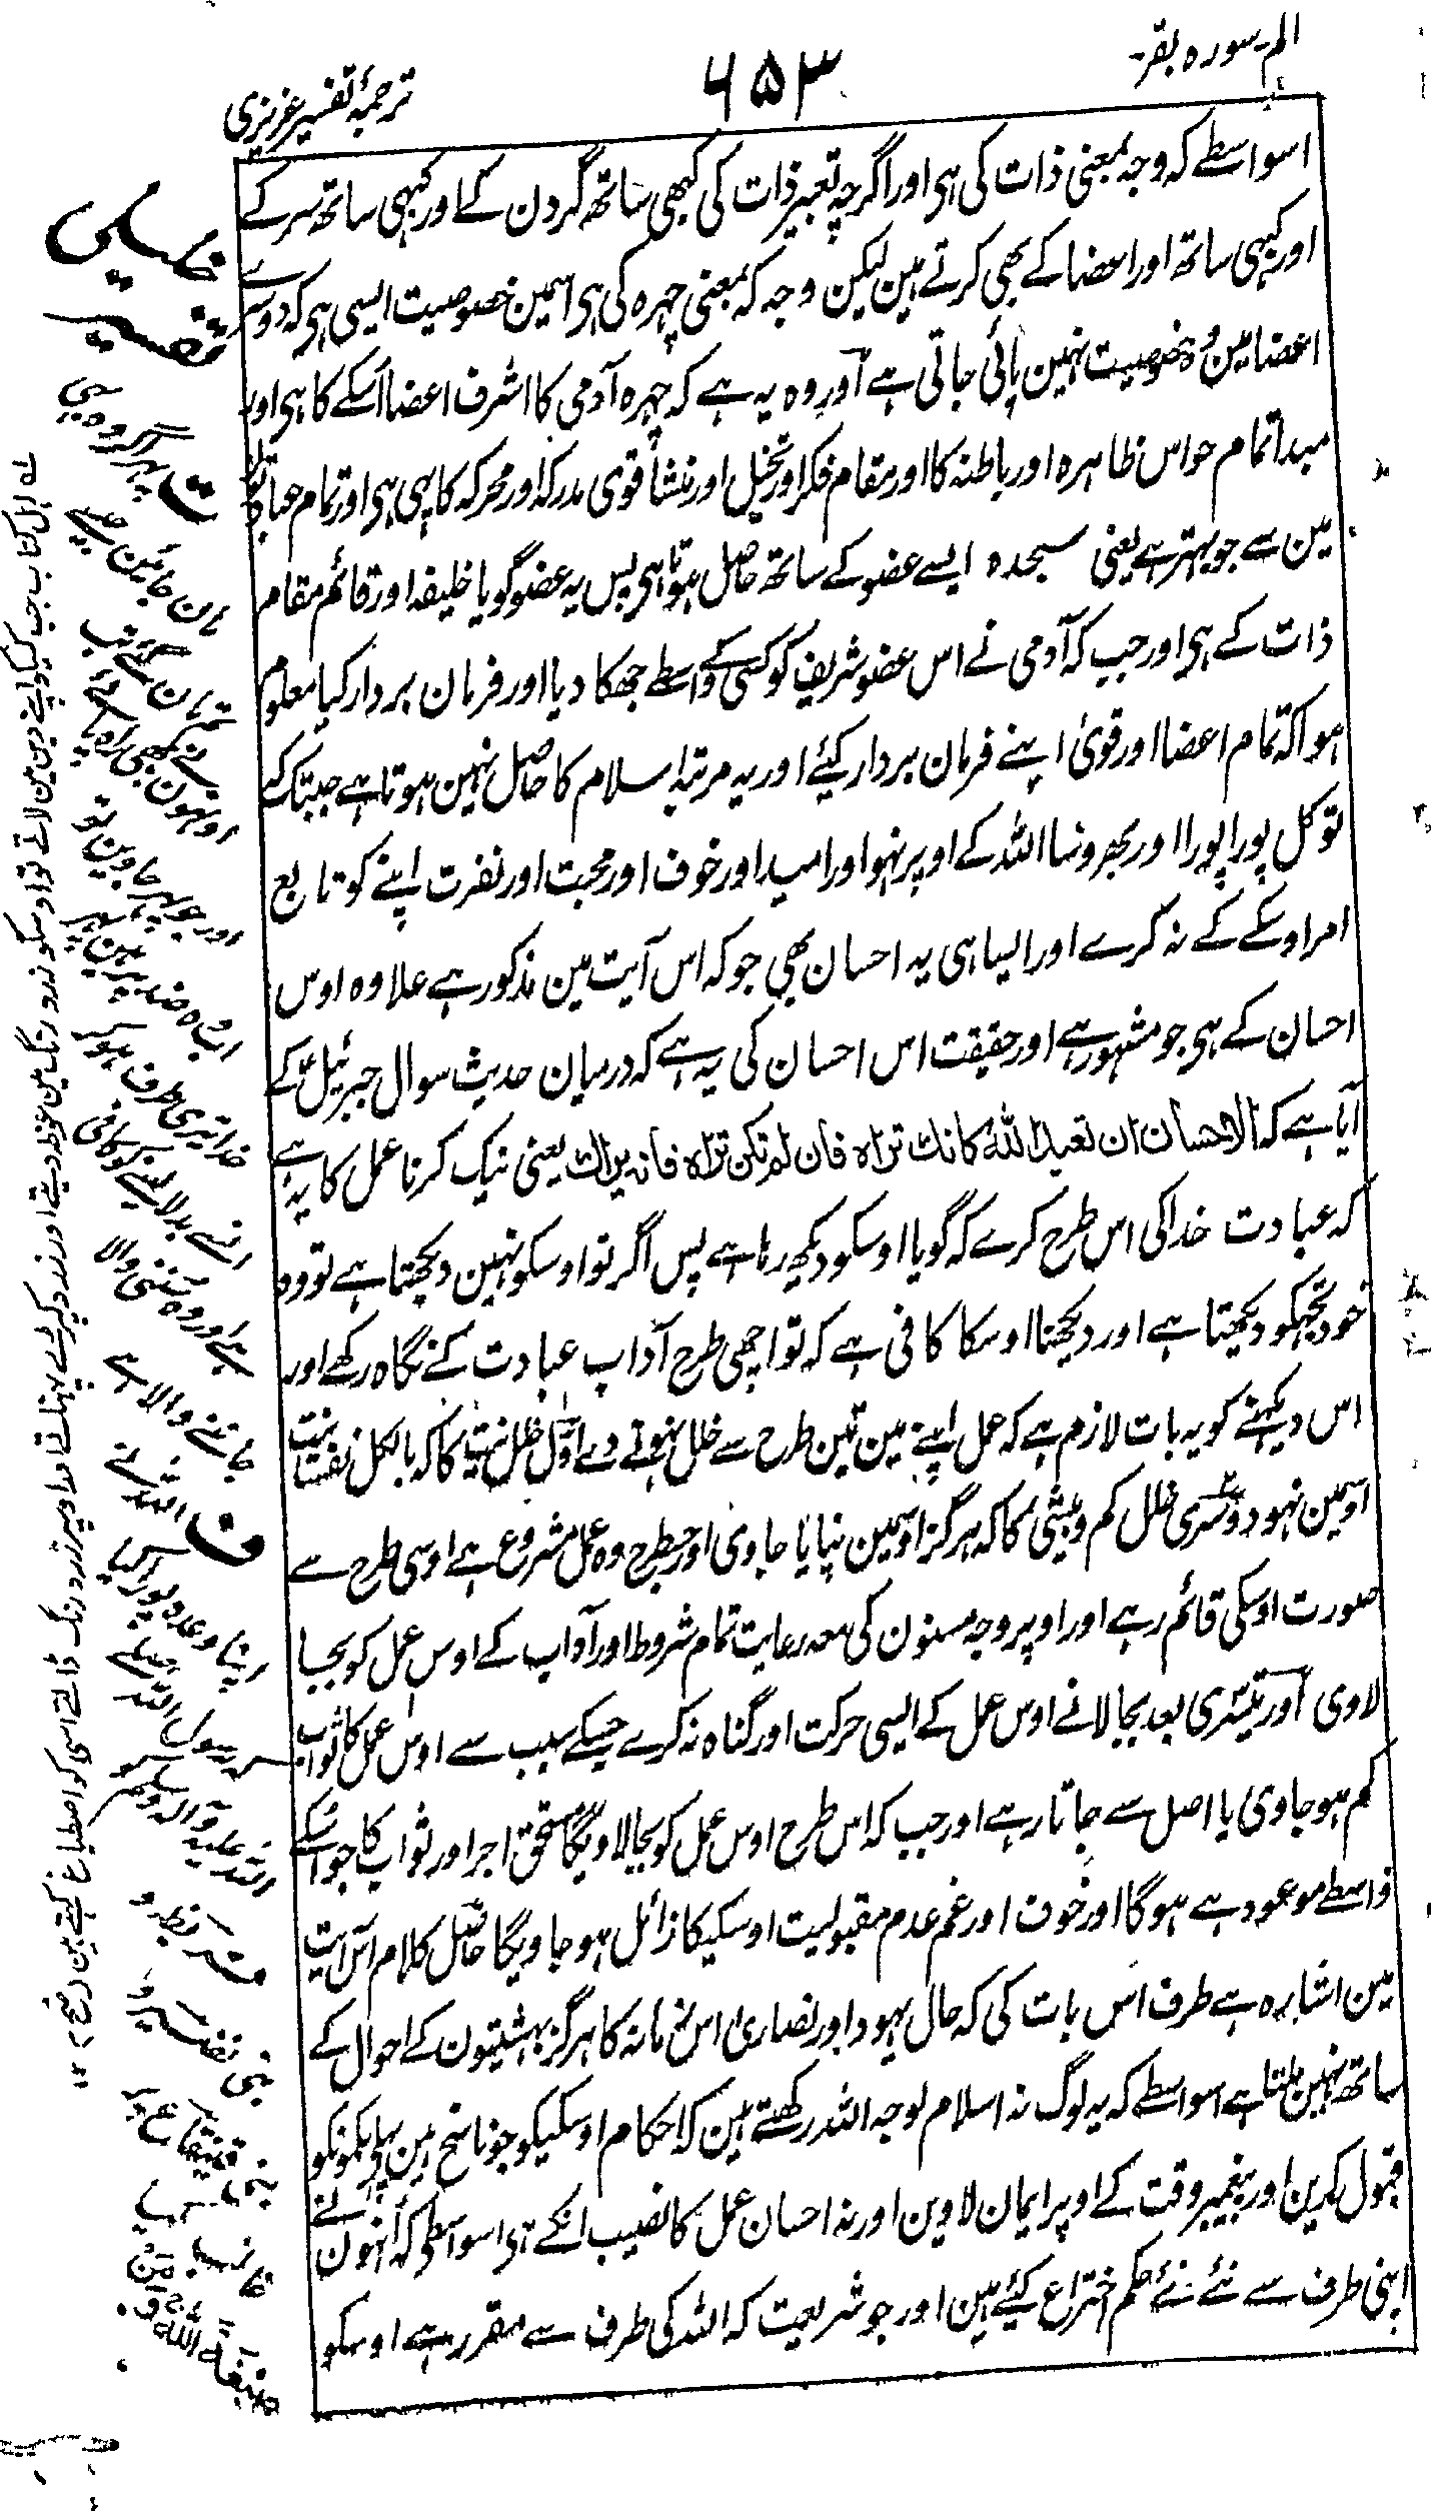 الم۔ سورہ بقر۔
۶۵۳
ترجمۂ تفسیر عزیزی
اسواسطے کہ وجہ بمعنی ذات کی ہی اور اگرچہ تعبیر ذات کی کبھی ساتھ گردن کے اور کبہی ساتھ سر کے
اور کبہی ساتھ اور اعضا کے بھی کرتے ہین لیکن وجہ کہ بمعنی چہرہ کی ہی اسمین خصوصیت ایسی ہی کہ دوسرے
اعضا مین وہ خصوصیت نہین پائی جاتی ہے اور وہ یہ ہے کہ چہرہ آدمی کا اشرف اعضا اُسکے کا ہی اور
مبدأ تمام حواس ظاہرہ اور باطنہ کا اور مقام فکر اور تخیل اور منشأ قوی مدرکہ اور محرکہ کا یہی ہی اور تمام عبادتون
مین سے جو بہتر ہے یعنی سجدہ ایسے عضو کے ساتھ حاصل ہوتا ہی پس یہ عضو گویا خلیفہ اور قائم مقام
ذات کے ہی اور جب کہ آدمی نے اس عضو شریف کو کسی کے واسطے جھکا دیا اور فرمان بردار کیا معلوم
ہوا کہ تمام اعضا اور قویٰ اپنے فرمان بردار کیئے اور یہ مرتبہ اسلام کا حاصل نہین ہوتا ہے جبتک کہ
توکل پورا پورا اور بھروسا اللہ کے اوپر نہو اور امید اور خوف اور محبت اور نفرت اپنے کو تابع
امر اوسکے کے نہ کرے اور ایسا ہی یہ احسان بھی جو کہ اس آیت مین مذکور ہے علاوہ اوس
احسان کے ہی جو مشہور ہے اور حقیقت اس احسان کی یہ ہے کہ درمیان حدیث سوال جبرئیل کے
آیا ہے کہ الاحسان ان تعبد اللہ کانك تراہ فان لم تکن تراہ فانہ یراك یعنی نیک کرنا عمل کا یہ ہے
کہ عبادت خدا کی اس طرح کرے کہ گویا اوسکو دیکھ رہا ہے پس اگر تو اوسکو نہین دیکھتا ہے تو وہ
خود تجہکو دیکھتا ہے اور دیکھنا اوسکا کافی ہے کہ تو اچھی طرح آداب عبادت کے نگاہ رکھے اور
اس دیکہنے کو یہ بات لازم ہے کہ عمل اپنے مین تین طرح سے خلل نہونے دے اوّل خلل نیت کا کہ بالکل نفسانیت
اوسمین نہو دوسری خلل کم و بیشی کا کہ ہرگز اوسمین نپایا جاوی اور جسطرح وہ عمل مشروع ہے اوسی طرح سے
صورت اوسکی قائم رہے اور اوپر وجہ مسنون کی معہ رعایت تمام شروط اور آداب کے اوس عمل کو بجا
لاوی اور تیسری بعد بجا لانے اوس عمل کے ایسی حرکت اور گناہ نہ کرے جسکے سبب سے اوس عمل کا ثواب
کم ہو جاوی یا اصل سے جاتا رہے اور جب کہ اس طرح اوس عمل کو بجا لاویگا مستحق اجر اور ثواب کا جو اسکے
واسطے موعود ہے ہوگا اور خوف اور غم عدم مقبولیت اوسکیکا زائل ہو جاویگا حاصل کلام اس آیت
مین اشارہ ہے طرف اس بات کی کہ حال یہود اور نصاریٰ اس زمانہ کا ہرگز بہشتیون کے احوال کے
ساتھ نہین ملتا ہے اسواسطے کہ یہ لوگ نہ اسلام لوجہ اللہ رکھتے ہین کہ احکام اوسکیکو جو ناسخ ہین پہلے حکمونکو
قبول کرین اور پیغمبر وقت کے اوپر ایمان لاوین اور نہ احسان عمل کا نصیب انکے ہی اسواسطے کہ اُنہون نے
اپنی طرف سے نئے نئے حکم اختراع کیئے ہین اور جو شریعت کہ اللہ کی طرف سے مقرر ہے اوسکو
تقصیر
ت پہر اگر وہ بھی
خدا تیری طرف ہو کر
ہے اور وہ سننے والا
جاننے والا ہے
ف اللہ نے
اپنا وعدہ پورا کیا
رسول اللہ صلے
اللہ علیہ وآلہ وسلم
بنی نضیر و
بنی قینقاع پر
غالب
صِبْغَةَ اللهِ وَمَنْ
اہل کتاب جب کسیکو اپنے دین مین لاتے تو اوسکو زرد رنگ مین غوطہ دیتے اور زرد کپڑے پہناتے